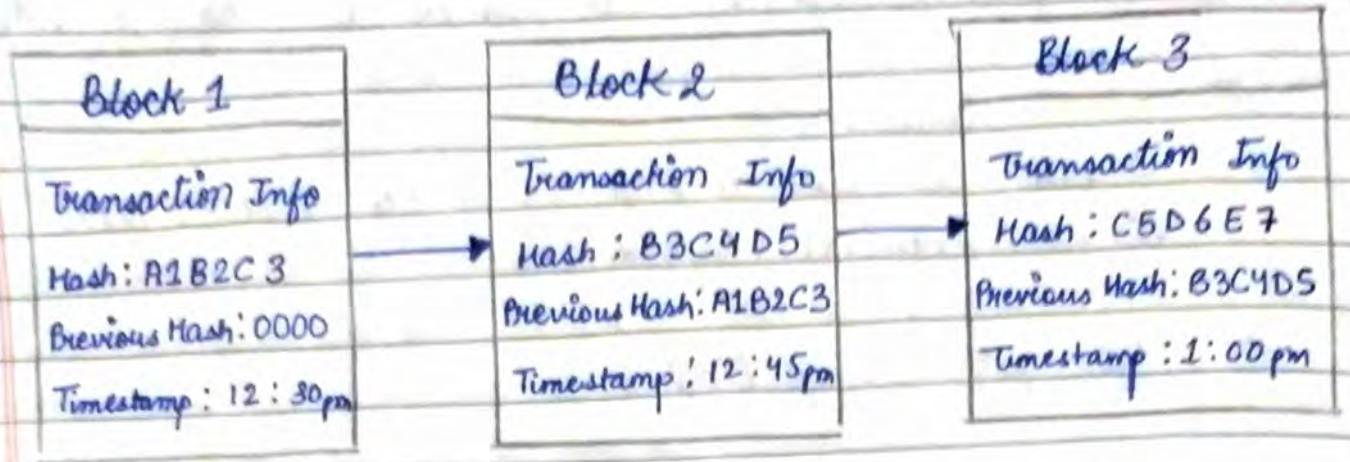 Block 1
Transaction Info
Hash: A1B2C3
Previous Hash: 0000
Timestamp: 12:30pm
Block 2
Transaction Info
Hash: B3C4D5
Previous Hash: A1B2C3
Timestamp: 12:45pm
Block 3
Transaction Info
Hash: C5D6E7
Previous Hash: B3C4D5
Timestamp: 1:00 pm